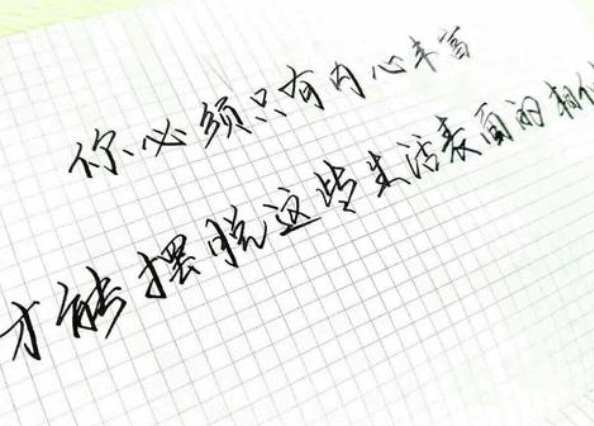 你必须只有内心丰富
才能摆脱这些生活表面的相